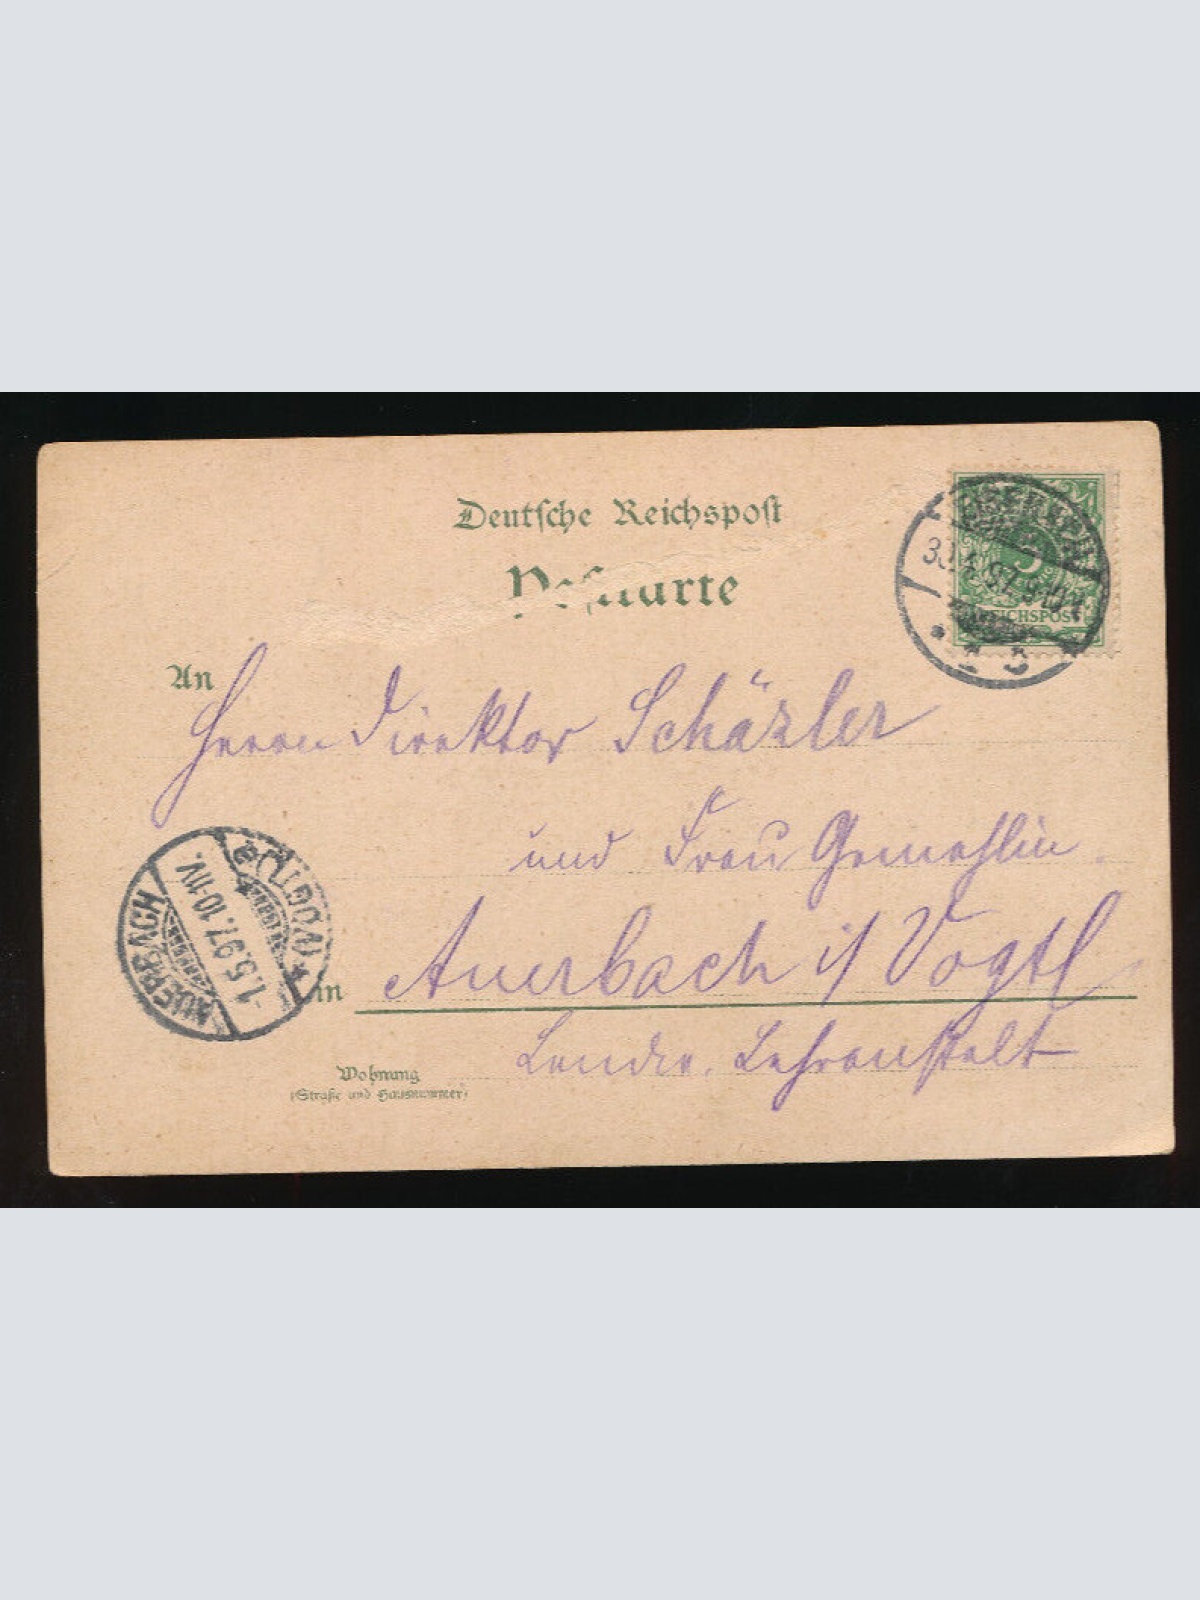 Deutsche Reichspost
Postkarte
EISENACH
30.4.97.9-10V.
REICHSPOST
An
Herrn Direktor Schäzler
und Frau Gemahlin
in Auerbach i/ Vogtl
Landw. Lehranstalt
Wohnung
(Straße und Hausnummer)
AUERBACH
1.5.97.10-11V.
(VOGTL.)